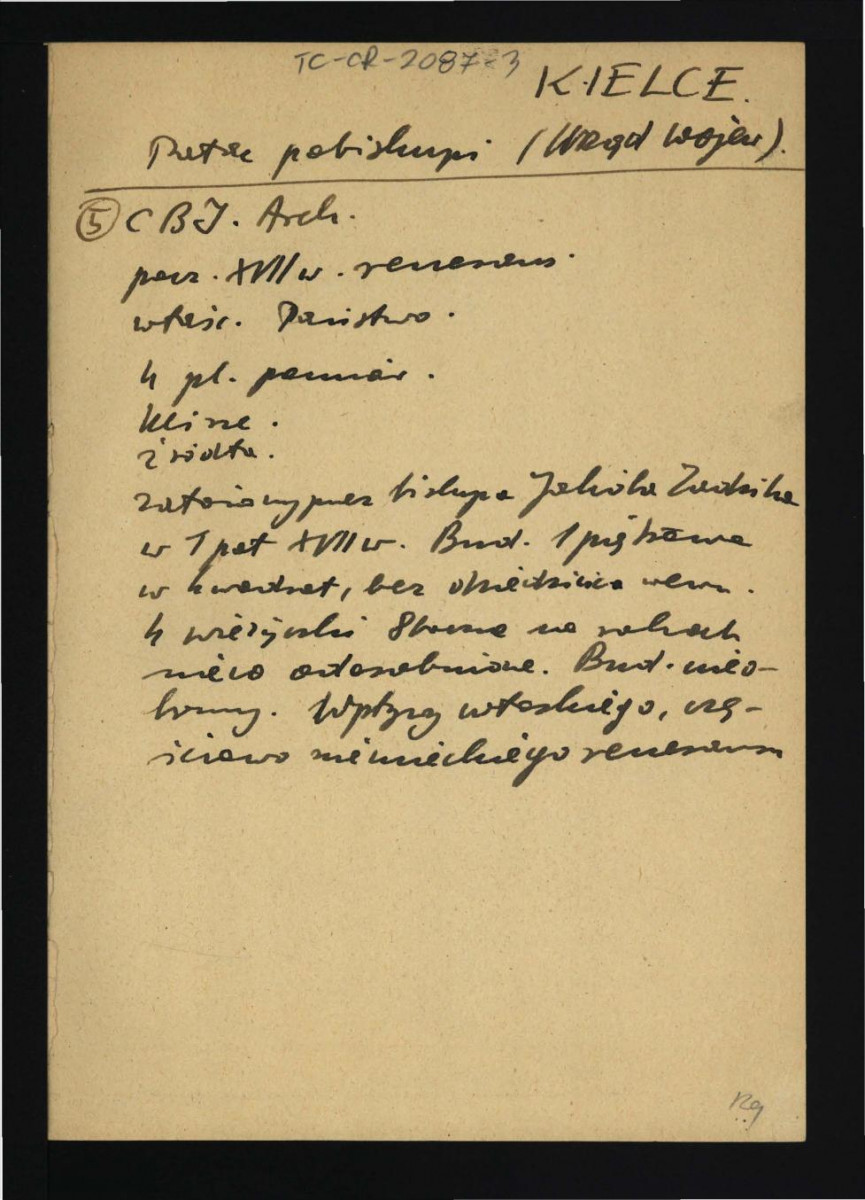 TC-CR-2087-3
KIELCE.
Pałac pobiskupi (Urząd Wojew).
5 C B I. Arch.
pocz. XVII w. renesans.
właśc. Państwo.
4 pl. pomiar.
Klisze.
źródła.
założony przez biskupa Jakóba Zadzika
w 1 poł XVII w. Bud. 1 piętrowa
w kwadrat, bez dziedzińca wewn.
4 wieżyczki 8boczne na rokach
nieco odosobnione. Bud. nieo-
bronny. Wpływy włoskiego, czę-
ściowo niemieckiego renesansu